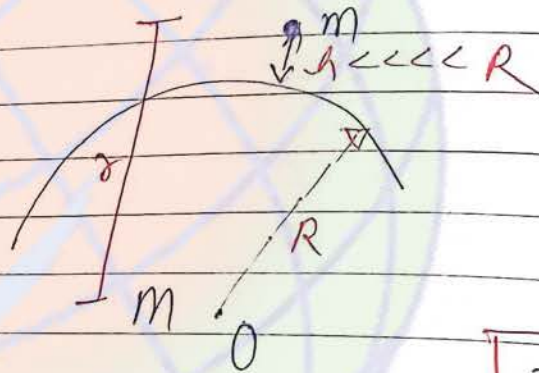 m
h <<<< R
r
R
M
O